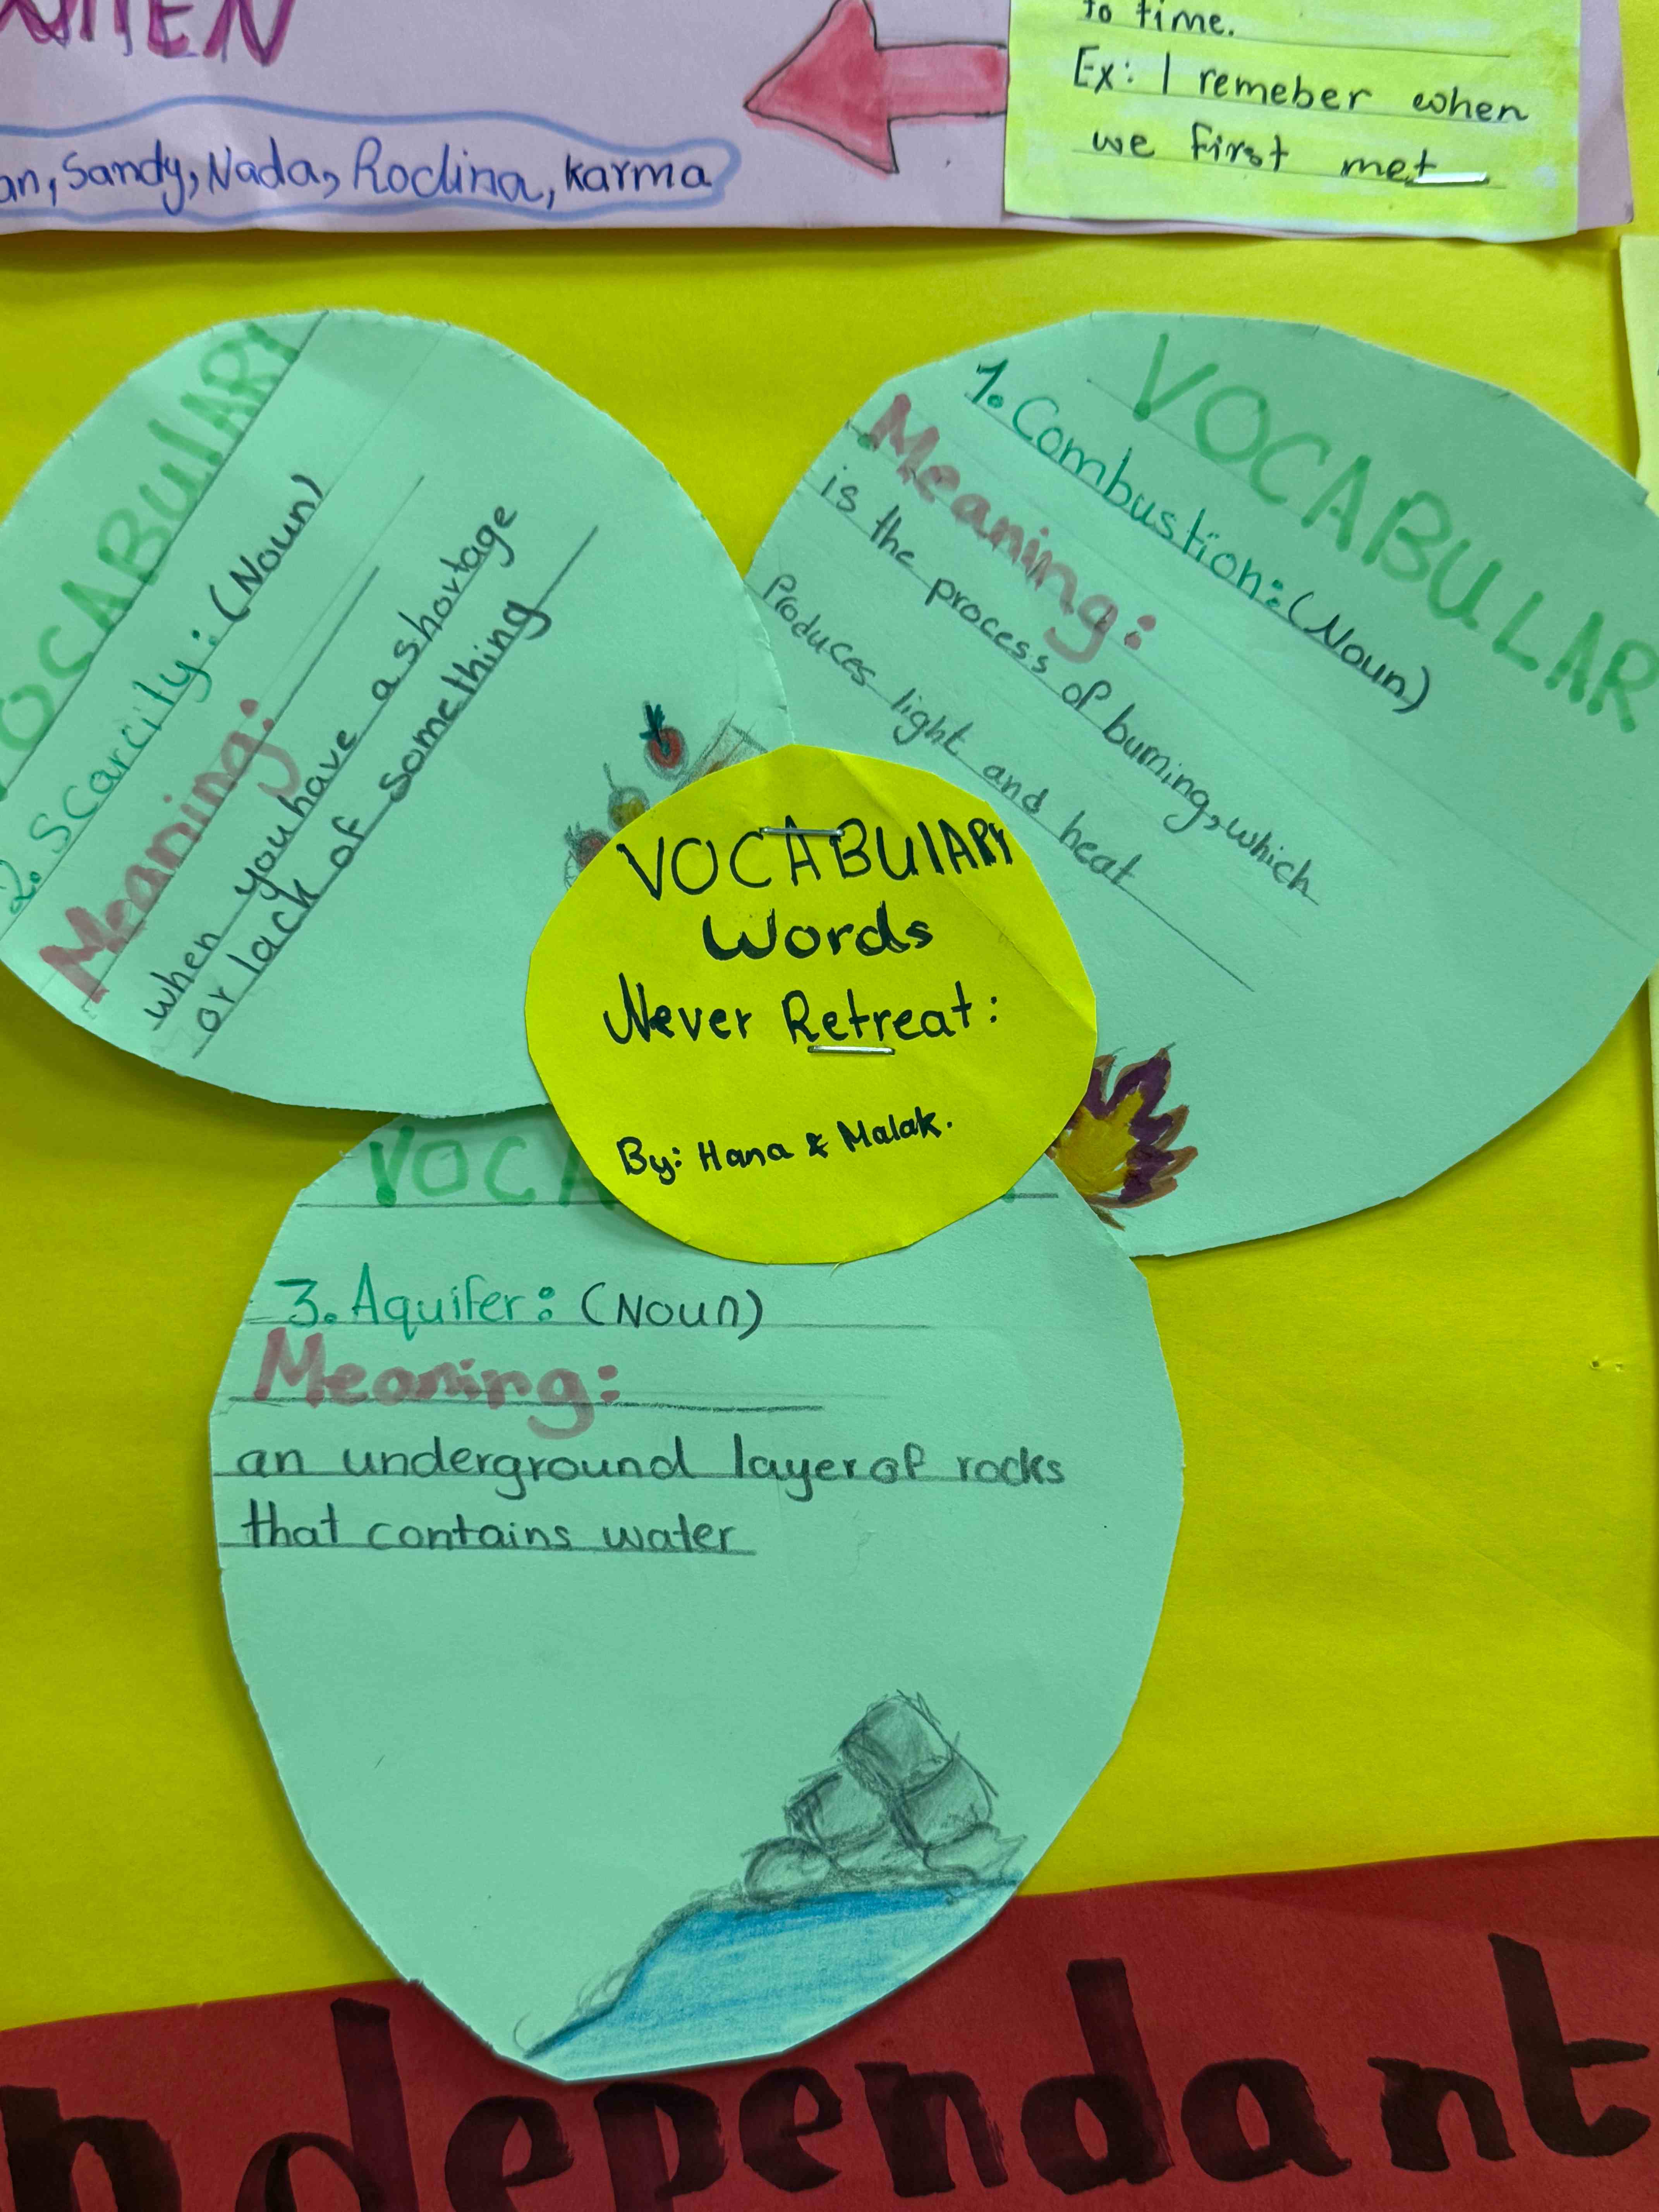 WHEN
Sandy, Nada, Rodina, Karma
to time.
Ex: I remeber when
we first met
VOCABULARY
2. Scarcity: (Noun)
Meaning:
when you have a shortage
or lack of something
VOCABULAR
1. Combustion: (Noun)
Meaning:
is the process of burning, which
Produces light and heat
VOCABULARY
Words
Never Retreat:
By: Hana & Malak.
VOCA
3. Aquifer: (Noun)
Meaning:
an underground layer of rocks
that contains water
ndependant